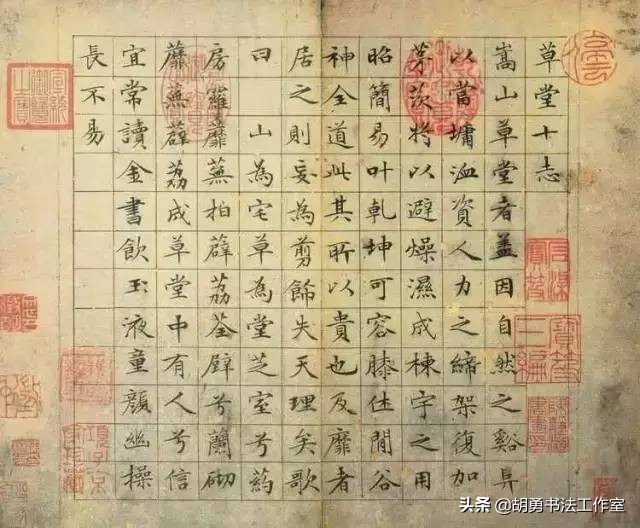 草堂十志
嵩山草堂者盖因自然之谿阜
以當墉洫資人力之締架復加
茅茨将以避燥濕成棟宇之用
昭簡易叶乾坤可容膝休閒谷
神全道此其所以貴也及靡者
居之則妄為剪飾失天理矣歌
曰 山為宅草為堂芝室兮葯
房羅蘼蕪拍薜荔荃壁兮蘭砌
蘼蕪薜荔成草堂中有人兮信
宜常讀金書飲玉液童顏幽操
長不易
头条 @胡勇书法工作室